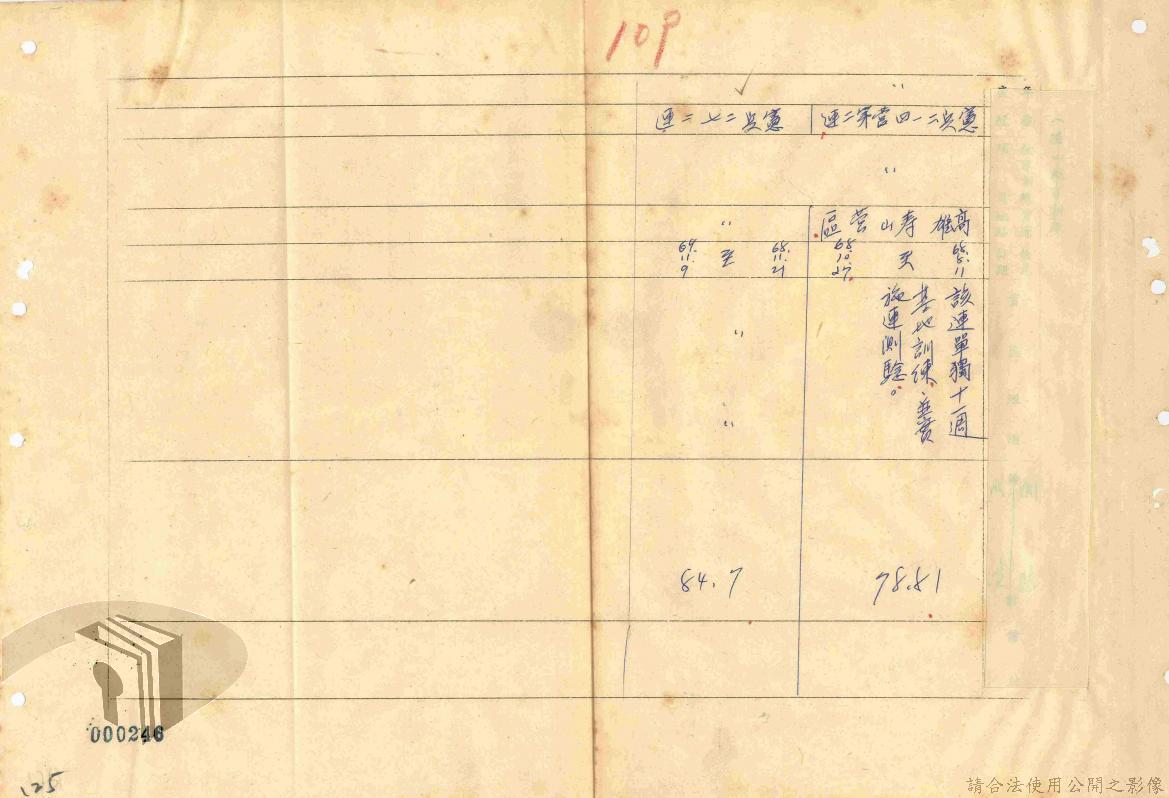 109
〃
憲兵二一四營第二連
〃
高雄壽山營區
68.8.11
至
68.10.27.
該連單獨十一週
基地訓練、並實
施連測驗。
78.81
憲兵二七二連
〃
68.11.21
至
69.11.9
〃
〃
84.7
000246
125
請合法使用公開之影像